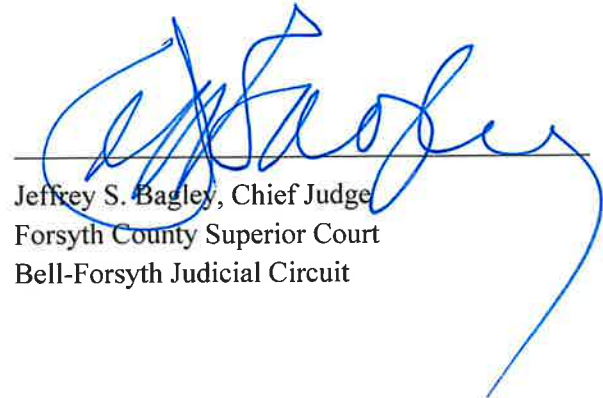 Jeffrey S. Bagley, Chief Judge
Forsyth County Superior Court
Bell-Forsyth Judicial Circuit